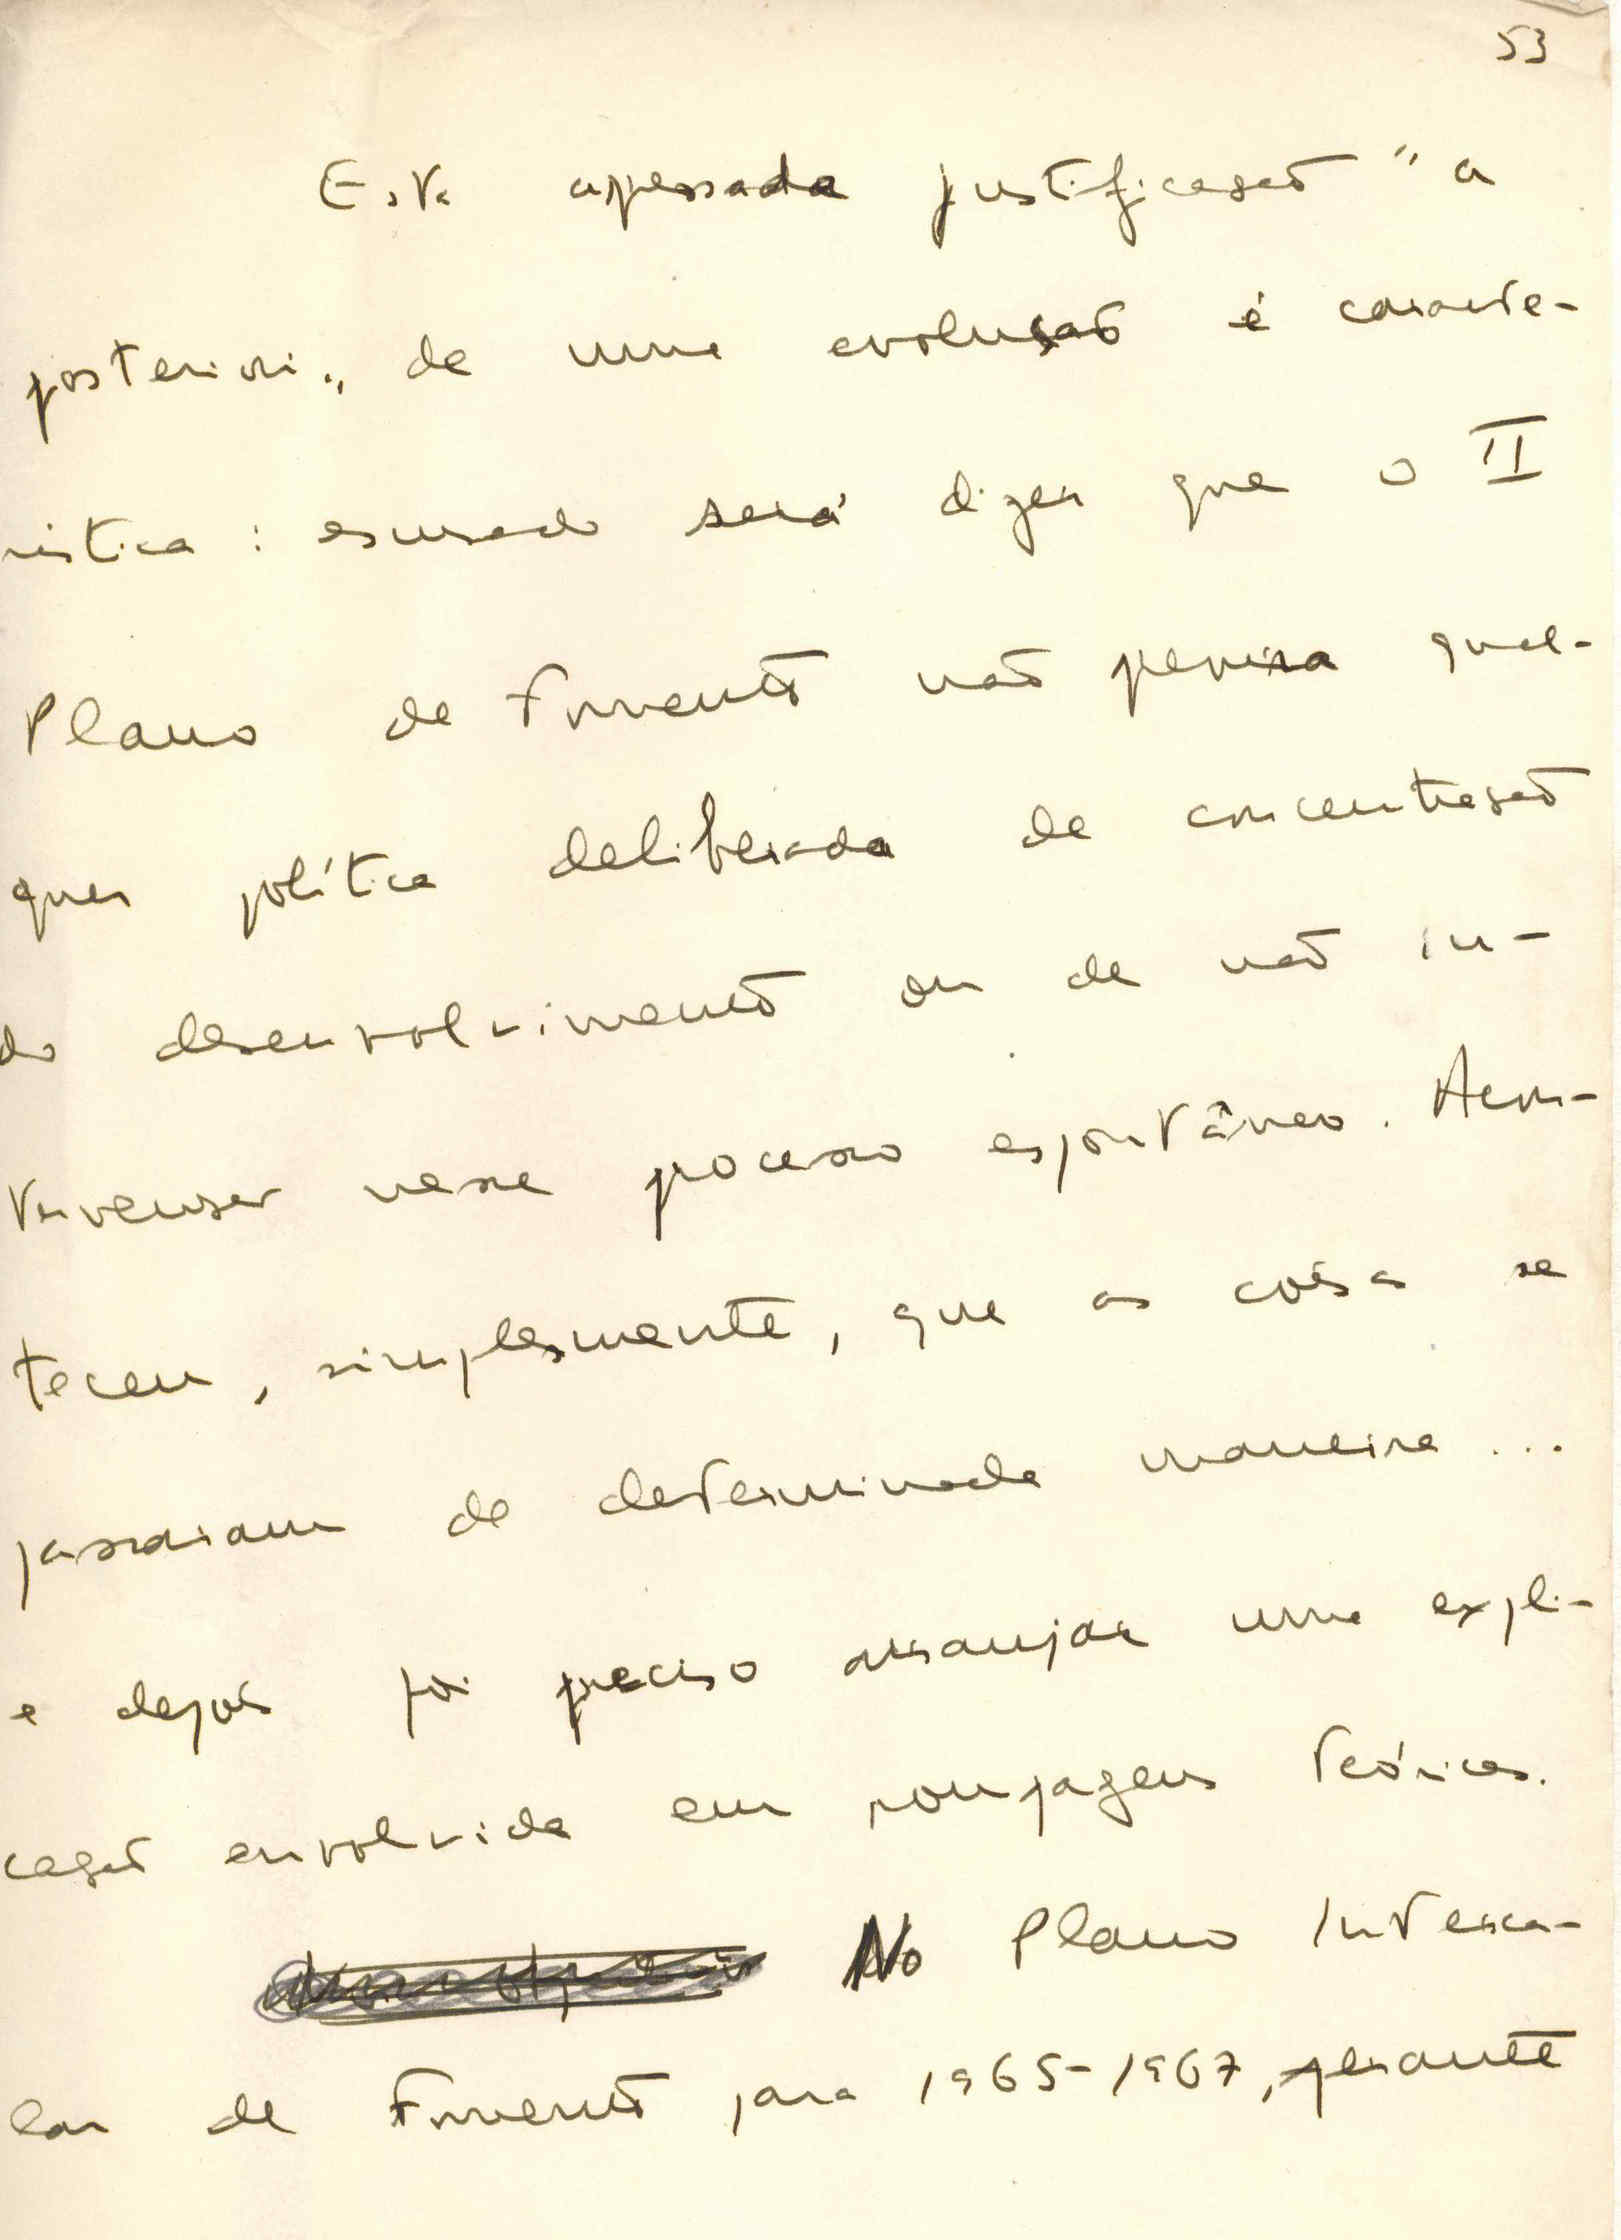 53
Esta apressada justificação "a
posteriori" de uma evolução é caracte-
rística: escusado será dizer que o II
Plano de Fomento não previra qual-
quer política deliberada de concentração
do desenvolvimento ou de não in-
tervenção nesse processo espontâneo. Acon-
teceu, simplesmente, que as coisas se
passaram de determinada maneira ...
e depois foi preciso arranjar uma expli-
cação envolvida em roupagens teóricas.
No Plano Interca-
lar de Fomento para 1965-1967, perante